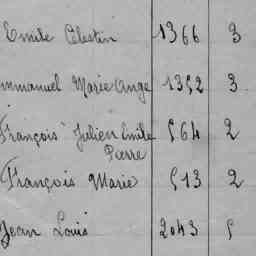 Emile Célestin 1366 3
mmanuel Marie Ange 1352 3
François Julien Emile 564 2
Pierre
François Marie 513 2
Jean Louis 2043 5